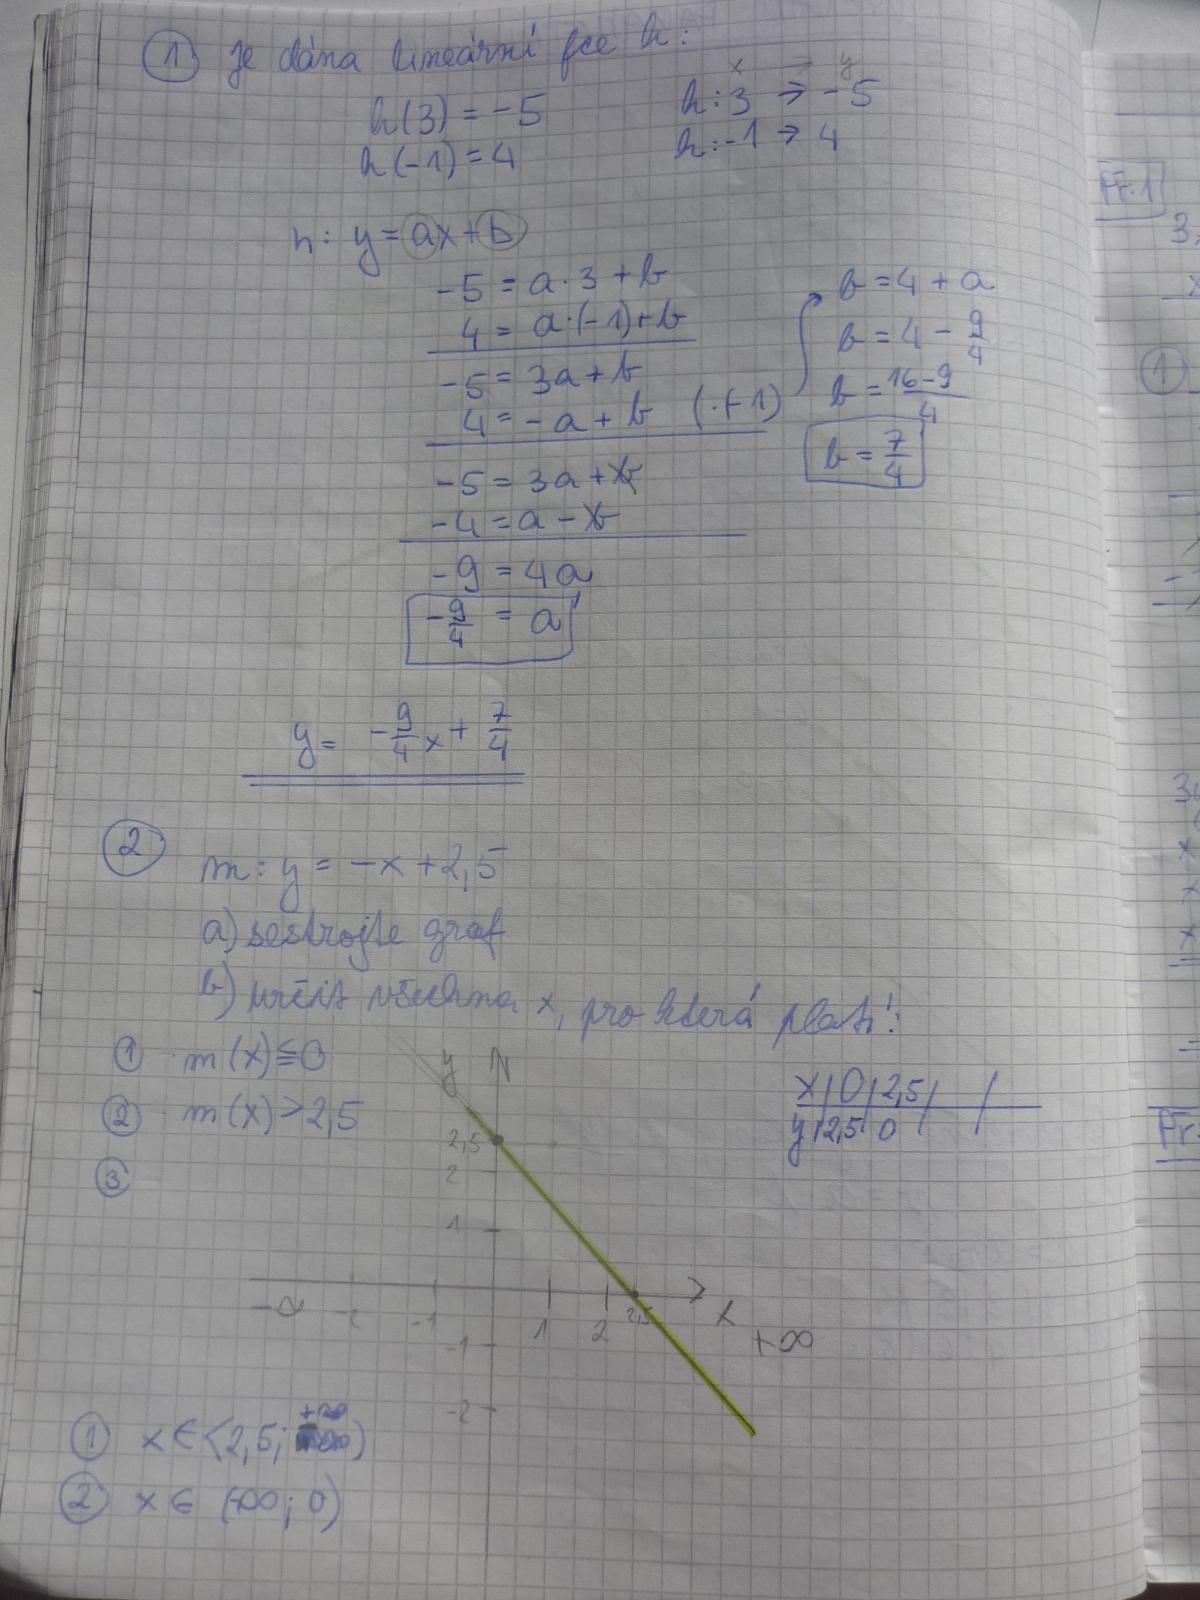 1 Je dána lineární fce h:
x → y
h(3) = -5
h: 3 → -5
h(-1) = 4
h: -1 → 4
h: y = ax + b
-5 = a·3 + b
4 = a·(-1) + b
-5 = 3a + b
4 = -a + b (·(-1)
-5 = 3a + b
-4 = a - b
-9 = 4a
-9/4 = a
b = 4 + a
b = 4 - 9/4
b = 16-9/4
b = 7/4
y = -9/4 x + 7/4
2 m: y = -x + 2,5
a) sestrojte graf
b) určit všechna x, pro která platí:
1 m(x) ≦ 0
2 m(x) > 2,5
3
x | 0 | 2,5 |
y | 2,5 | 0
y
2,5
2
1
-∞ -2 -1 1 2 2,5 x +∞
-1
-2
1 x ∈ <2,5; +∞)
2 x ∈ (-∞; 0)
Př. 1
1